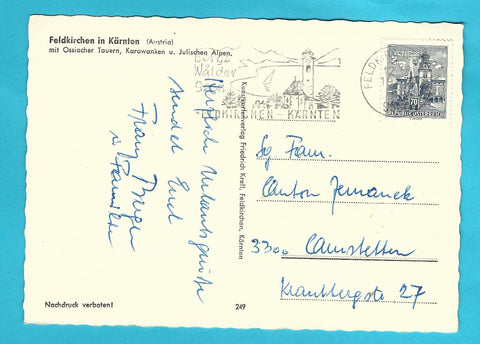 Feldkirchen in Kärnten (Austria)
mit Ossiacher Tauern, Karawanken u. Julischen Alpen.
Herzliche Urlaubsgrüße
sendet Euch
Franz
u. Familie
Nachdruck verboten!
249
Kunstkartenverlag Friedrich Kreil, Feldkirchen, Kärnten
Berge
Wälder
FELDKIRCHEN - KÄRNTEN
FELDK
70
REPUBLIK ÖSTERREICH
Sg Fam.
Anton Jemanek
3300 Amstetten
27